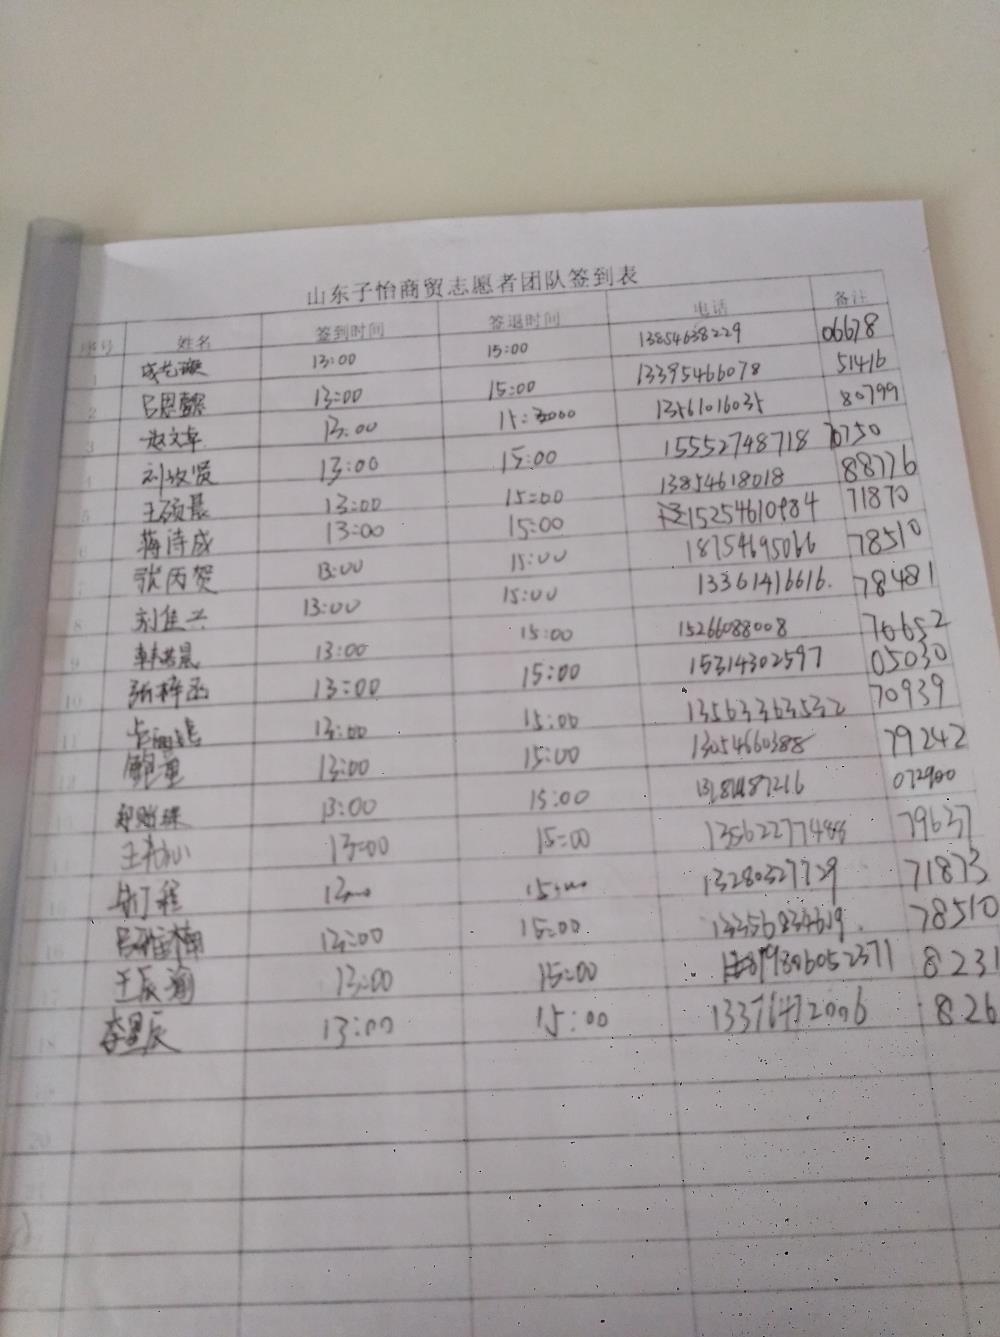 山东子怡商贸志愿者团队签到表
序号 姓名 签到时间 签退时间 电话 备注
1 13:00 15:00 13854638229 06678
2 吕恩懿 13:00 15:00 13395466078 51416
3 赵文卓 13:00 15: 13561016035 80799
4 刘政贤 13:00 15:00 15552748718 70750
5 王硕晨 13:00 15:00 13854618018 88776
6 蒋诗成 13:00 15:00 15254610984 71870
7 张丙贺 13:00 15:00 18754695066 78510
8 刘佳兴 13:00 15:00 13361416616. 78481
9 韩诺晨 13:00 15:00 15266088008 76652
10 张梓函 13:00 15:00 15314302597 05030
11 13:00 15:00 13563363532 70939
12 鲍童 13:00 15:00 13054660388 79242
13:00 15:00
王 13:00 15:00 13562277488 79637
程 15:00 13280527729 71873
13:00 15:00 78510
17 王辰 13:00 15:00 8231
18 李星辰 13:00 15:00 13376472006 826